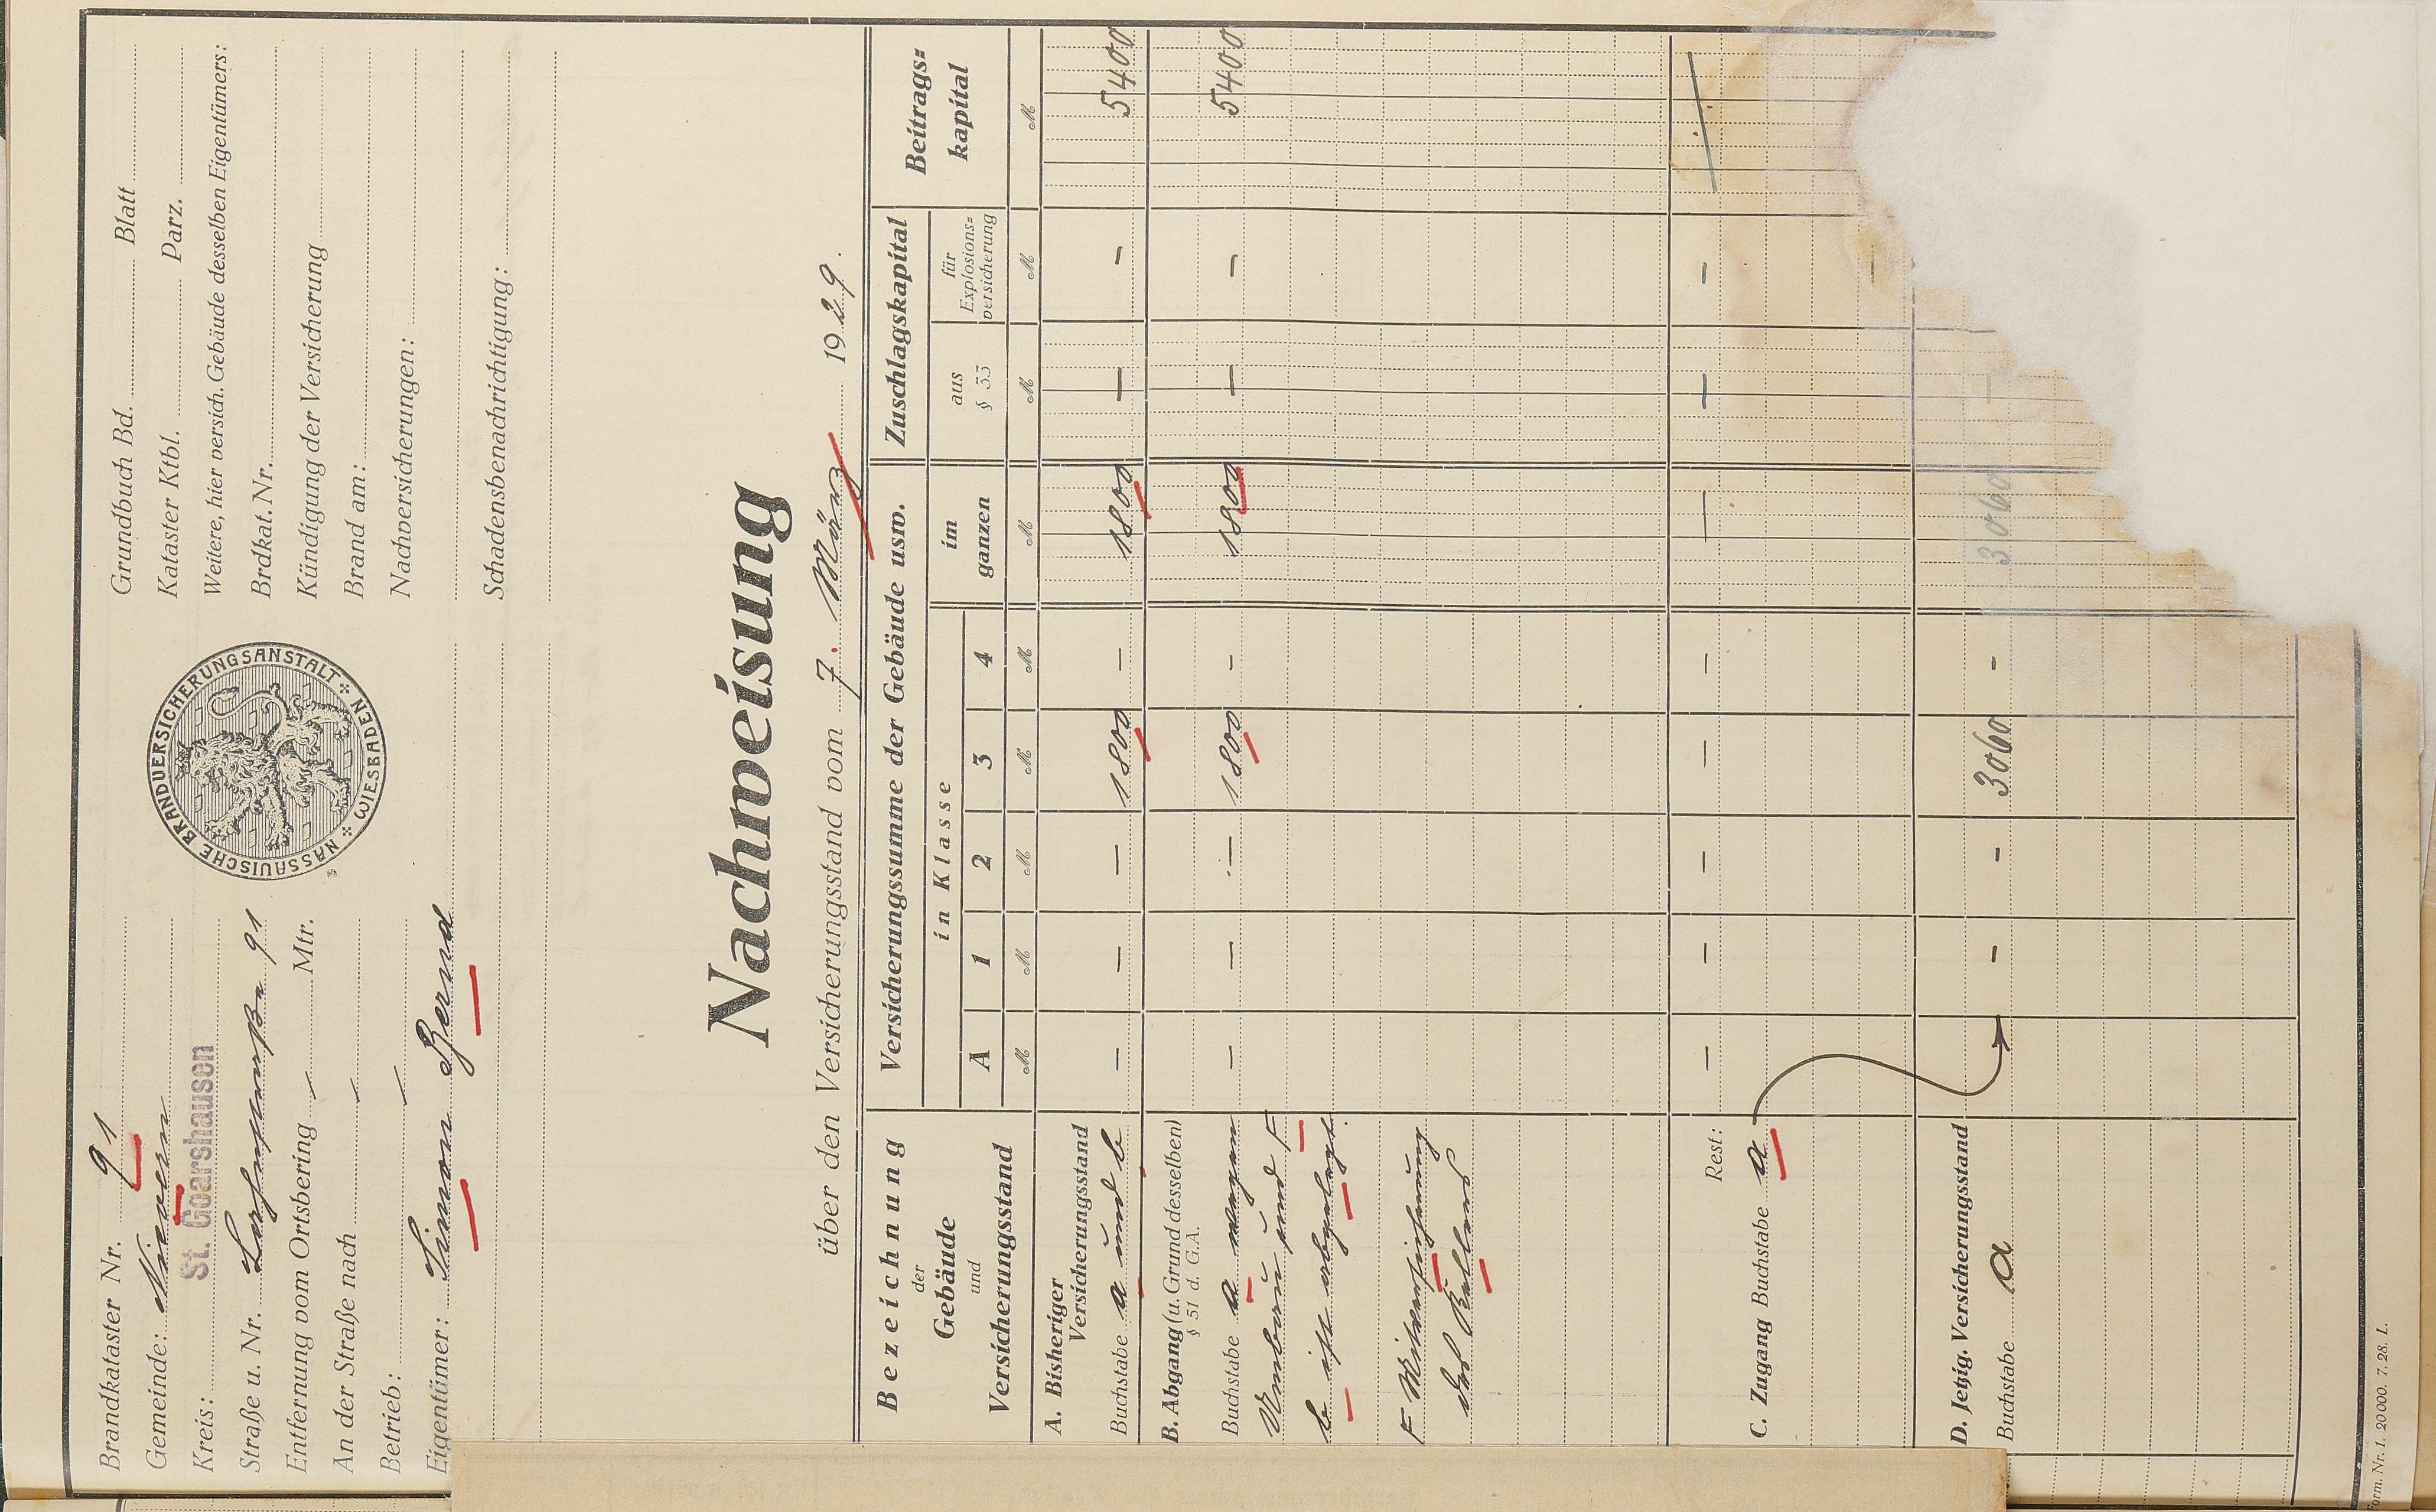 Brandkataster Nr. 91
Gemeinde: Nievern
Kreis: St. Goarshausen
Straße u. Nr. 91
Entfernung vom Ortsbering Mtr.
An der Straße nach
Betrieb:
Eigentümer: Simon Bernd
NASSAUISCHE BRANDVERSICHERUNGSANSTALT WIESBADEN
Grundbuch Bd. Blatt
Kataster Ktbl. Parz.
Weitere, hier versich. Gebäude desselben Eigentümers:
Brdkat. Nr.
Kündigung der Versicherung
Brand am:
Nachversicherungen:
Schadensbenachrichtigung:
Nachweisung
über den Versicherungsstand vom 7. März 1929.
Bezeichnung
der
Gebäude
und
Versicherungsstand
Versicherungssumme der Gebäude usw.
in Klasse
A 1 2 3 4
im
ganzen
Zuschlagskapital
aus
§ 33
für
Explosions=
versicherung
Beitrags=
kapital
M M M M M M M M M
A. Bisheriger
Versicherungsstand
Buchstabe a und b — — — 1800 — 1800 — — 5400
B. Abgang (u. Grund desselben)
§ 51 d. G.A.
Buchstabe a wegen — — — 1800 — 1800 — — 5400
Umbau und F
b ist abgelegt.
F
des
Rest: — — — — — — — —
C. Zugang Buchstabe a
D. Jetzig. Versicherungsstand
Buchstabe a - - 3060 - 3060 —
Form. Nr. 1. 20000. 7. 28. L.